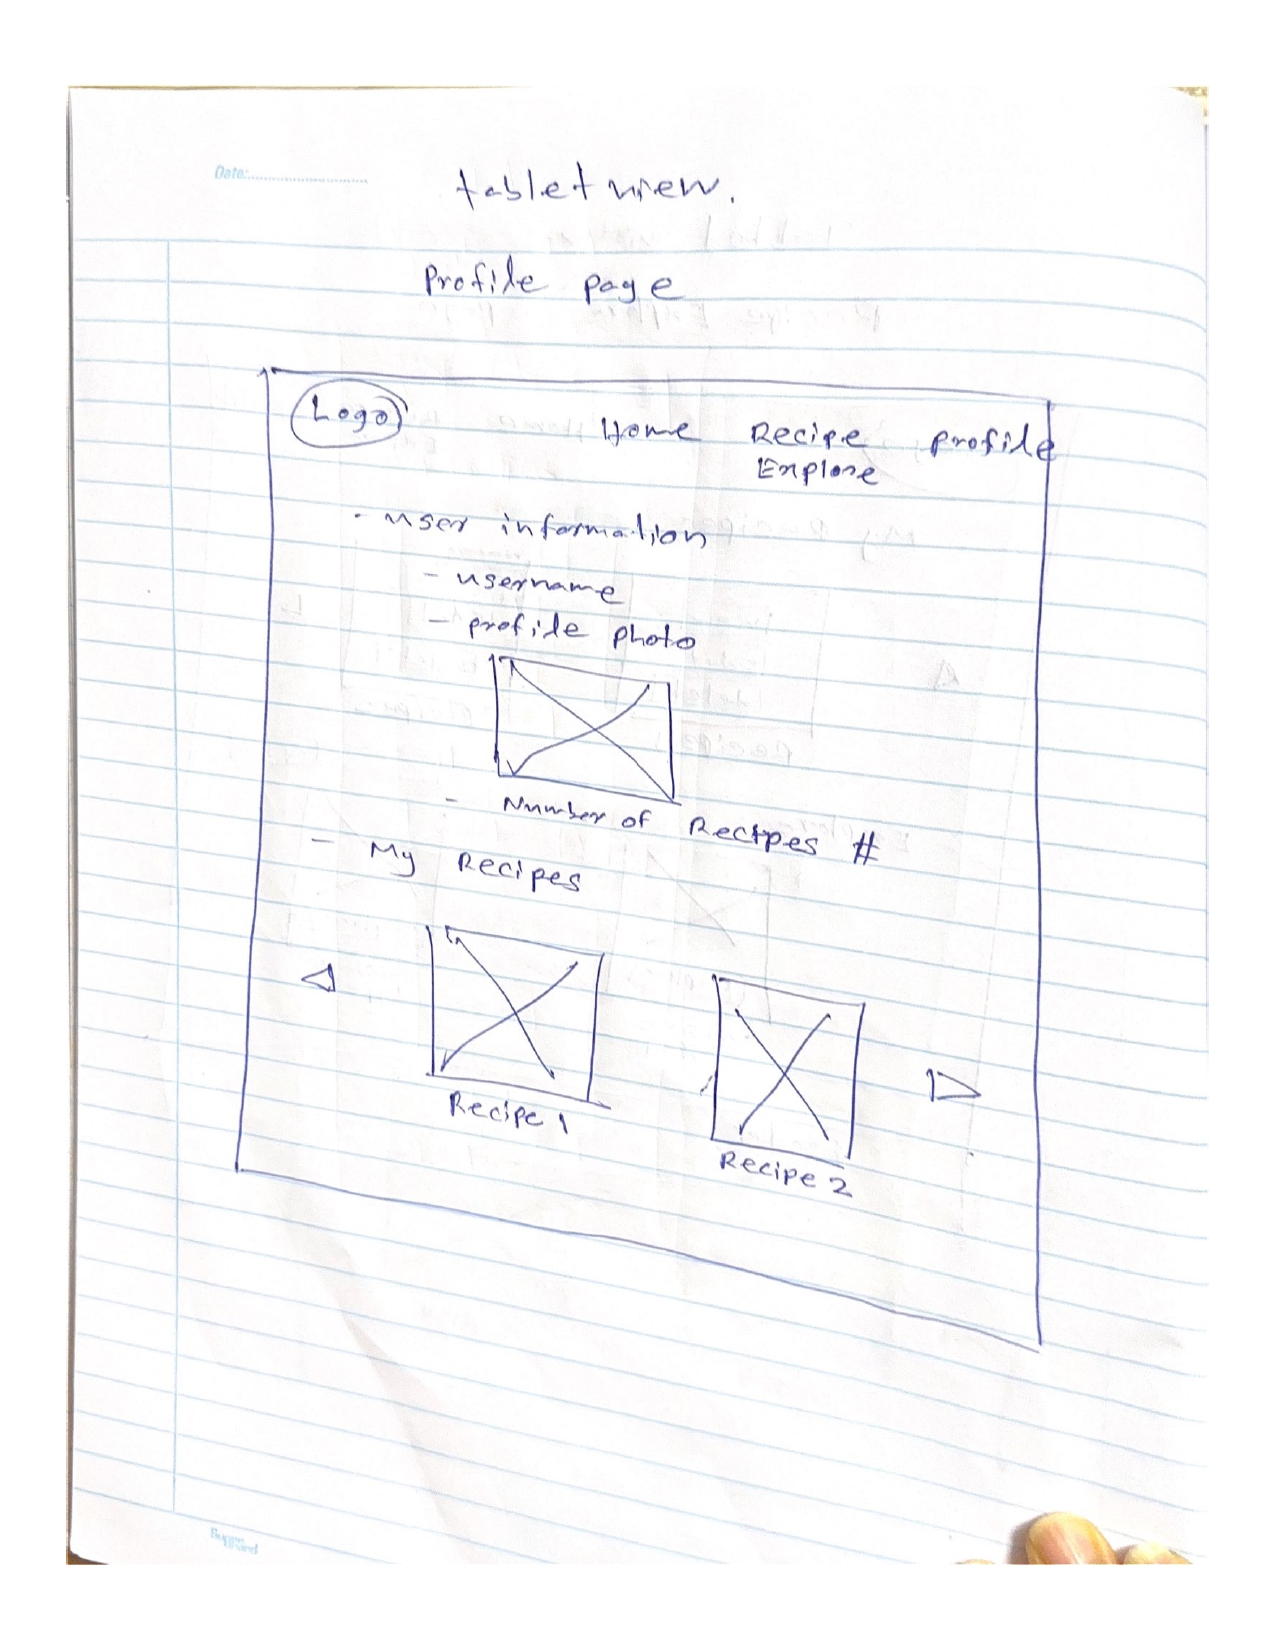 Date:
tablet view.
Profile page
Logo
Home Recipe profile
Explore
- user information
- username
- profile photo
- Number of Recipes #
- My Recipes
Recipe 1
Recipe 2